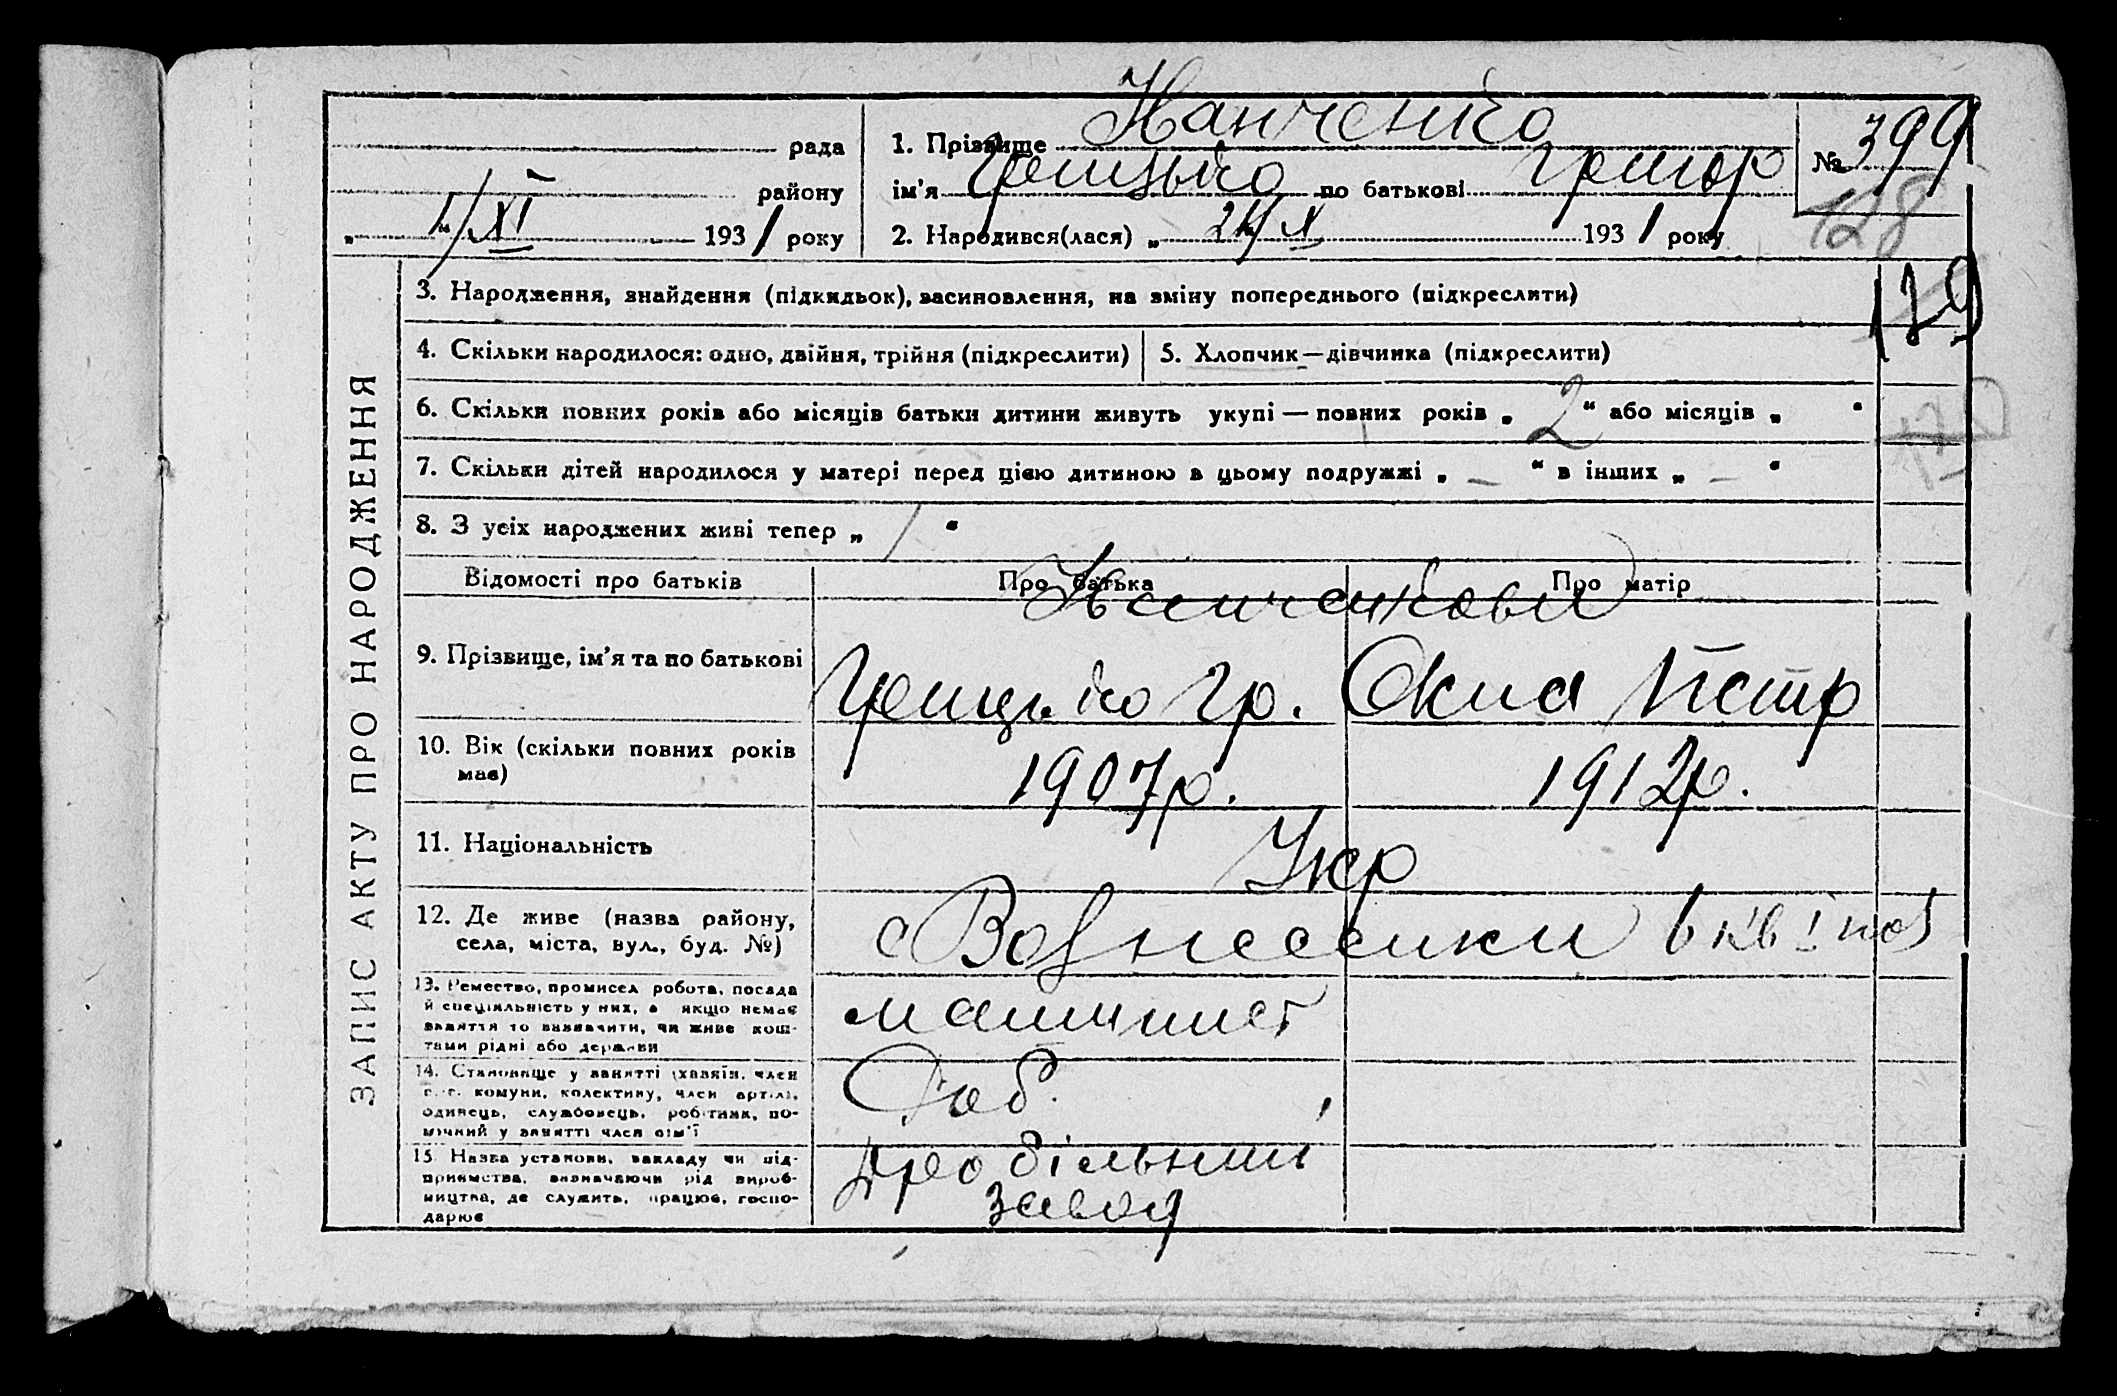 рада
района
„ 4/XI " 1931 року
1. Прізвище Нанченко
ім'я Грицько по батькові Григор
2. Народився(лася) „ 24/X 1931 року
№ 399
128
129
ЗАПИС АКТУ ПРО НАРОДЖЕННЯ
3. Народження, знайдення (підкидьок), засиновлення, на зміну попереднього (підкреслити)
4. Скільки народилося: одно, двійня, трійня (підкреслити)
5. Хлопчик — дівчинка (підкреслити)
6. Скільки повних років або місяців батьки дитини живуть укупі — повних років „ 2 “ або місяців „ “
7. Скільки дітей народилося у матері перед цією дитиною в цьому подружжі „ – “ в інших „ – “
8. З усіх народжених живі тепер „ 1 “
Відомості про батьків
Про батька
Про матір
9. Прізвище, ім'я та по батькові
Нанченкови
Грицько Гр.
Окса Петр
10. Вік (скільки повних років має)
1907р.
1912р.
11. Національність
Укр
12. Де живе (назва району, села, міста, вул., буд. №)
с Вознесенки
13. Ремество, промисел робота, посада й спеціяльність у них, а якщо немає заняття то визначити, чи живе коштами рідні або держави
машинист
14. Становище у занятті (хазяїн, член с.-г. комуни, колективу, член артілі, одинець, службовець, робітник, помічний у занятті член сім'ї
Роб.
15. Назва установи, закладу чи підприємства, визначаючи рід виробництва, де служить, працює, господарює
дробільний
завод